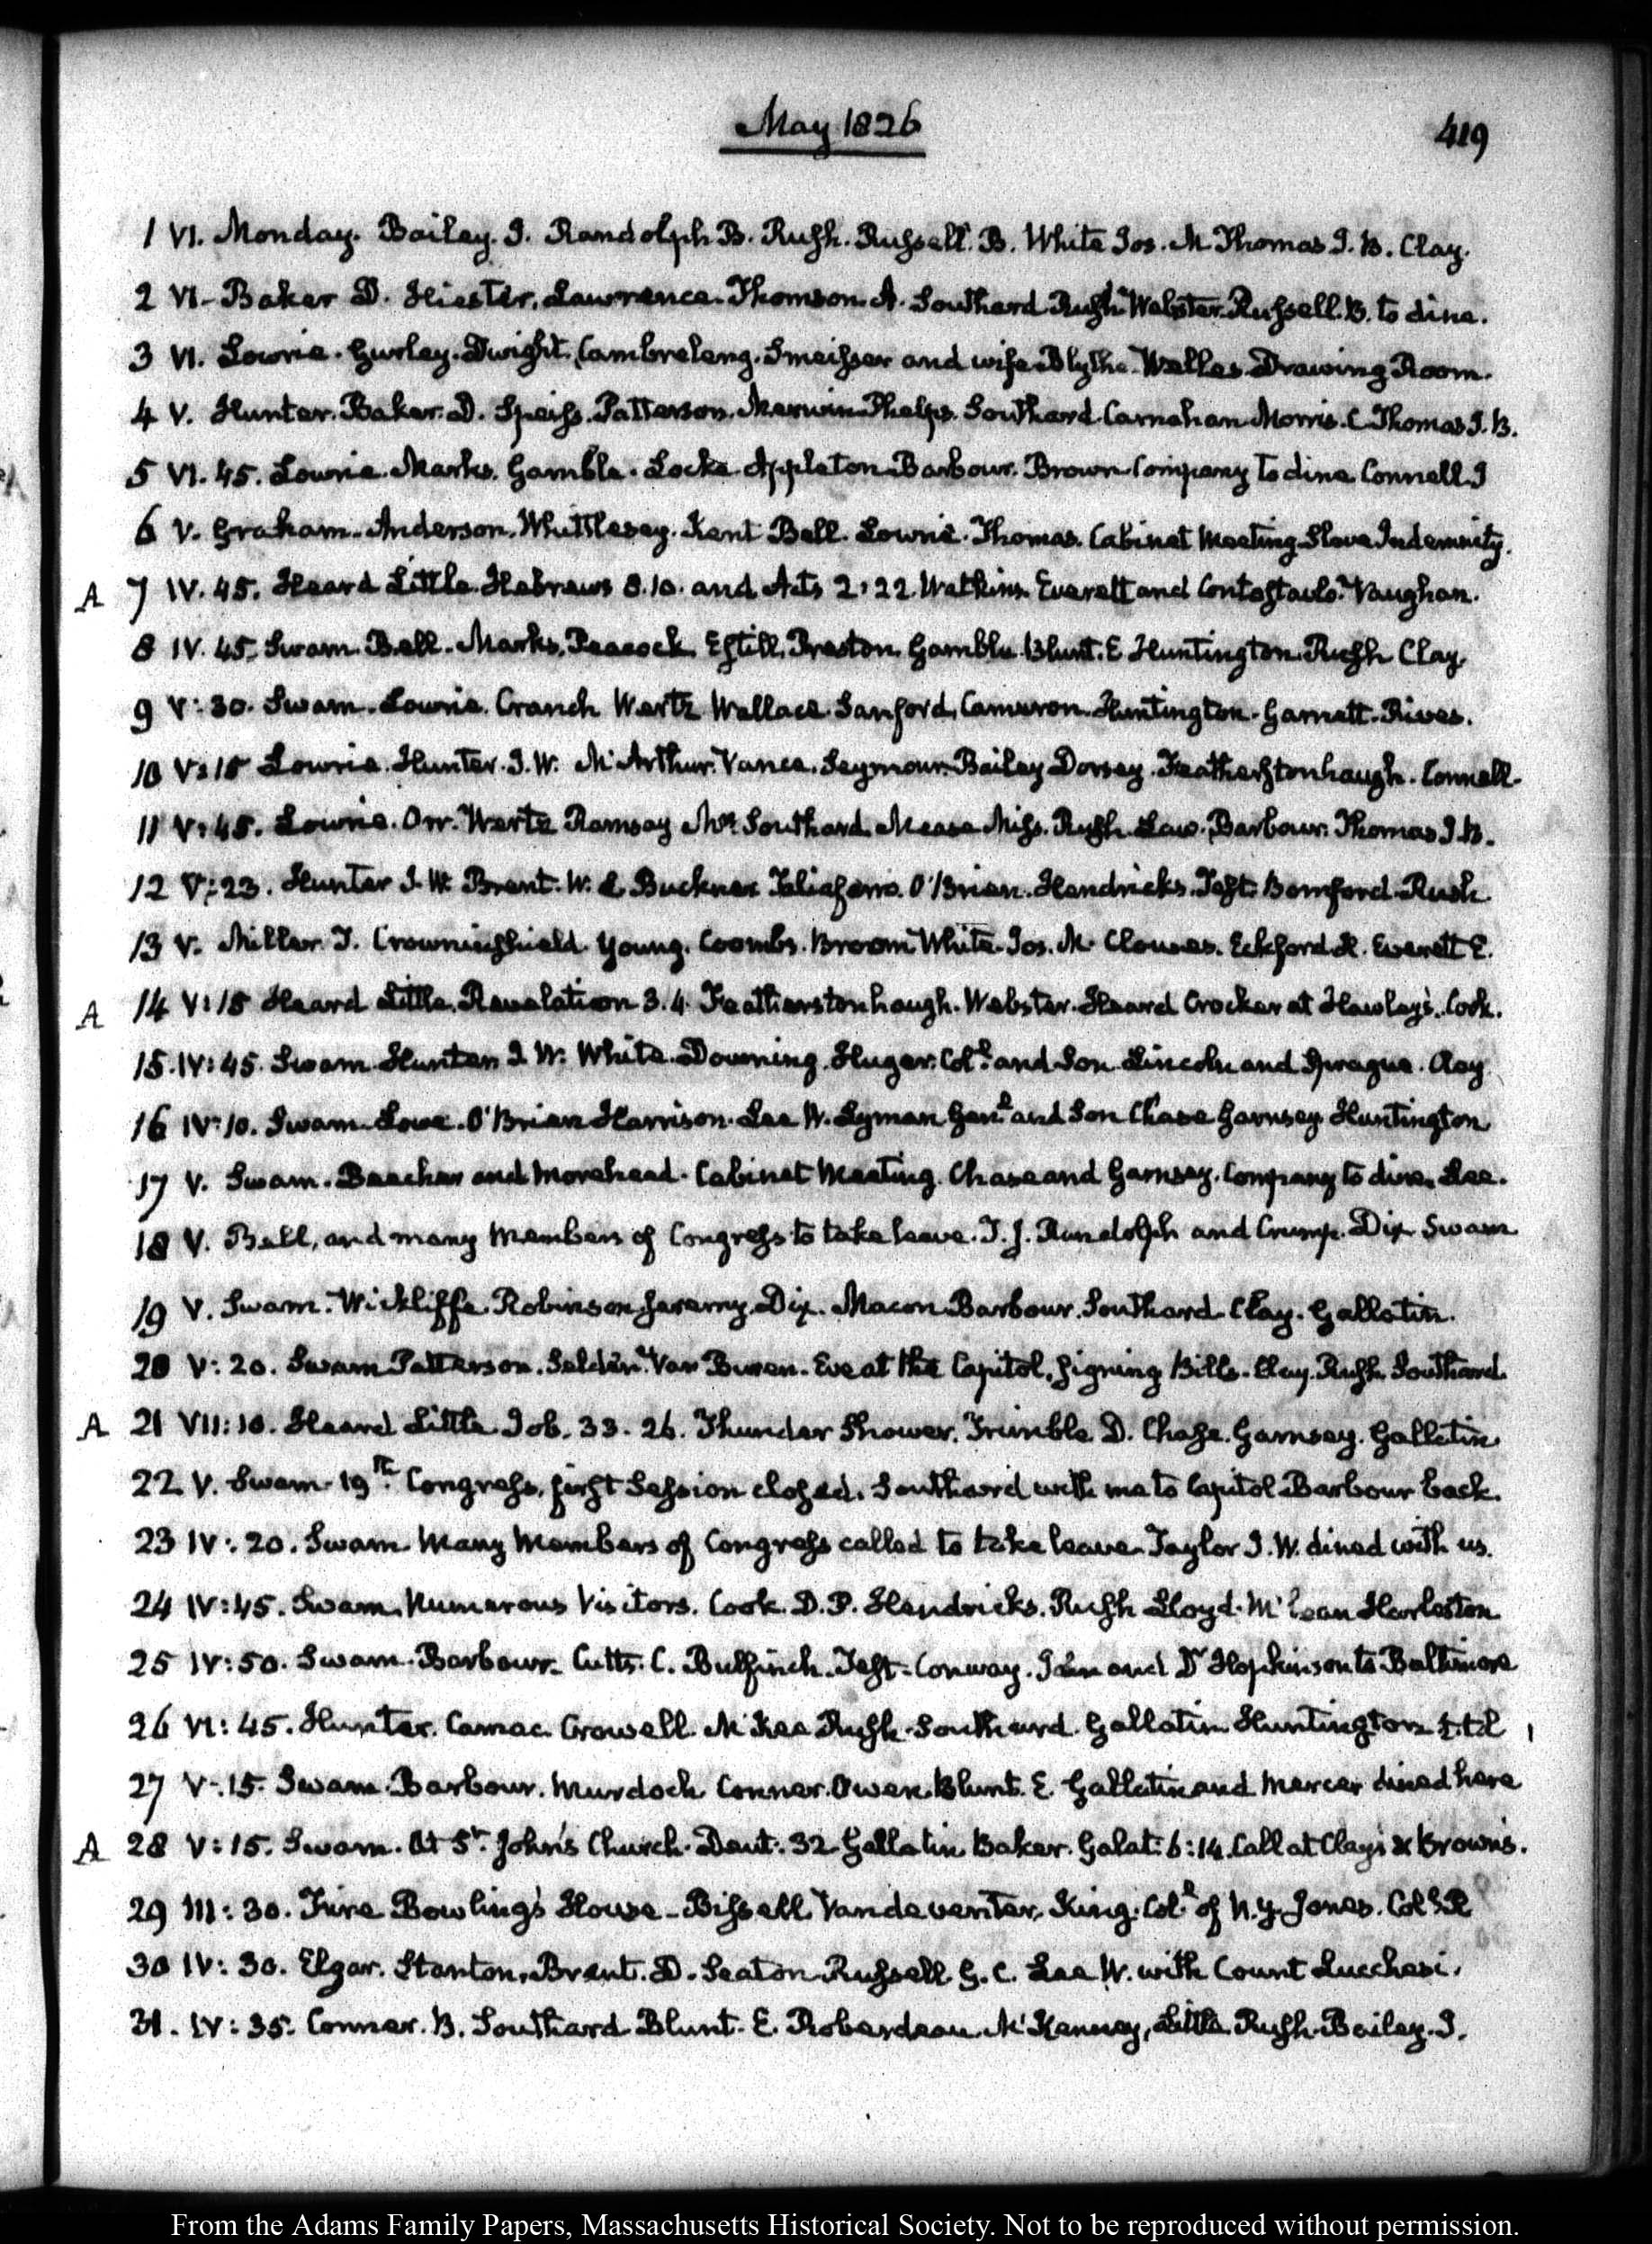 May 1826
419
1 VI. Monday. Bailey. J. Randolph B. Rush. Russell. B. White Jos. M. Thomas J. B. Clay.
2 VI. Baker D. Hiester. Lawrence. Thomson. A. Southard Rush Webster. Russell. B. to dine.
3 VI. Lowrie. Gurley. Dwight. Cambreleng. Smeisser and wife Blythe. Welles. Drawing Room.
4 V. Hunter. Baker. D. Speiss. Patterson. Merwin Phelps. Southard. Carnahan Morris. C. Thomas J. B.
5 VI. 45. Lowrie. Marks. Gamble. Locke Appleton Barbour. Brown Company to dine. Connell. J
6 V. Graham. Anderson. Whittlesey. Kent Bell. Lowrie. Thomas. Cabinet Meeting. Slave Indemnity.
A 7 IV. 45. Heard Little. Hebrews 8. 10. and Acts 2. 22. Watkins. Everett and Contostavlo. Vaughan.
8 IV. 45. Swam. Bell. Marks. Peacock. Estill. Preston. Gamble. Blunt. E. Huntington. Rush Clay.
9 V: 30. Swam. Lowrie. Cranch Wertz Wallace Sanford. Cameron. Huntington. Garnett. Rives.
10 V: 15 Lowrie. Hunter. J. W. McArthur. Vance. Seymour. Bailey Dorsey. Featherstonhaugh. Connell.
11 V: 45. Lowrie. Orr. Wertz Ramsay Mrs. Southard. Mease Miss. Rush. Law. Barbour. Thomas J. B.
12 V: 23. Hunter J. W. Brent. W. L. Buckner Taliaferro. O'Brien. Hendricks. Taft. Bomford. Rush.
13 V. Miller. J. Crowninshield. Young. Coombs. Broom White. Jos. M. Clowes. Eckford H. Everett E.
A 14 V: 15 Heard Little. Revelation 3. 4. Featherstonhaugh. Webster. Heard Crocker at Hawley's. Cook.
15. IV: 45. Swam Hunter J. W. White. Downing. Huger. Coll. and Son. Lincoln and Sprague. Clay
16 IV: 10. Swam. Lowe. O'Brien Harrison. Lee W. Lyman Genl. and Son Chase Garnsey. Huntington
17 V. Swam. Beecher and Morehead. Cabinet Meeting. Chase and Garnsey. Company to dine. Lee.
18 V. Bell, and many Members of Congress to take leave. T. J. Randolph and Crump. Dix. Swam
19 V. Swam. Wickliffe. Robinson Jeremy. Dix. Macon Barbour. Southard. Clay. Gallatin.
20 V: 20. Swam Patterson. Selden. Van Buren. Eve at the Capitol. signing Bills. Clay. Rush. Southard.
A 21 VII: 10. Heard Little Job. 33. 26. Thunder Shower. Trimble. D. Chase. Garnsey. Gallatin
22 V. Swam. 19th. Congress, first Session closed. Southard with me to Capitol Barbour back.
23 IV: 20. Swam. Many Members of Congress called to take leave. Taylor J. W. dined with us.
24 IV: 45. Swam. Numerous Visitors. Cook. D. P. Hendricks. Rush Lloyd. McLean Harleston
25 IV: 50. Swam. Barbour. Cutts. C. Bulfinch. Taft. Conway. John and Dr Hopkinson to Baltimore
26 VI: 45. Hunter. Camac. Crowell. McKee Rush. Southard. Gallatin. Huntington
27 V: 15. Swam. Barbour. Murdoch Conner. Owen. Blunt. E. Gallatin and Mercer dined here
A 28 V: 15. Swam. At St. John's Church. Deut. 32. Gallatin Baker. Galat. 6: 14. Call at Clay's & Brown's.
29 III: 30. Fire Bowling's House. Bissell. Vandeventer. King. Coll. of N. Y. Jones. Coll. R
30 IV: 30. Elgar. Stanton. Brent. D. Seaton. Russell. G. C. Lee W. with Count Lucchesi.
31. IV: 35. Conner. B. Southard. Blunt. E. Roberdeau. McKenney, Little. Rush. Bailey. J.
From the Adams Family Papers, Massachusetts Historical Society. Not to be reproduced without permission.